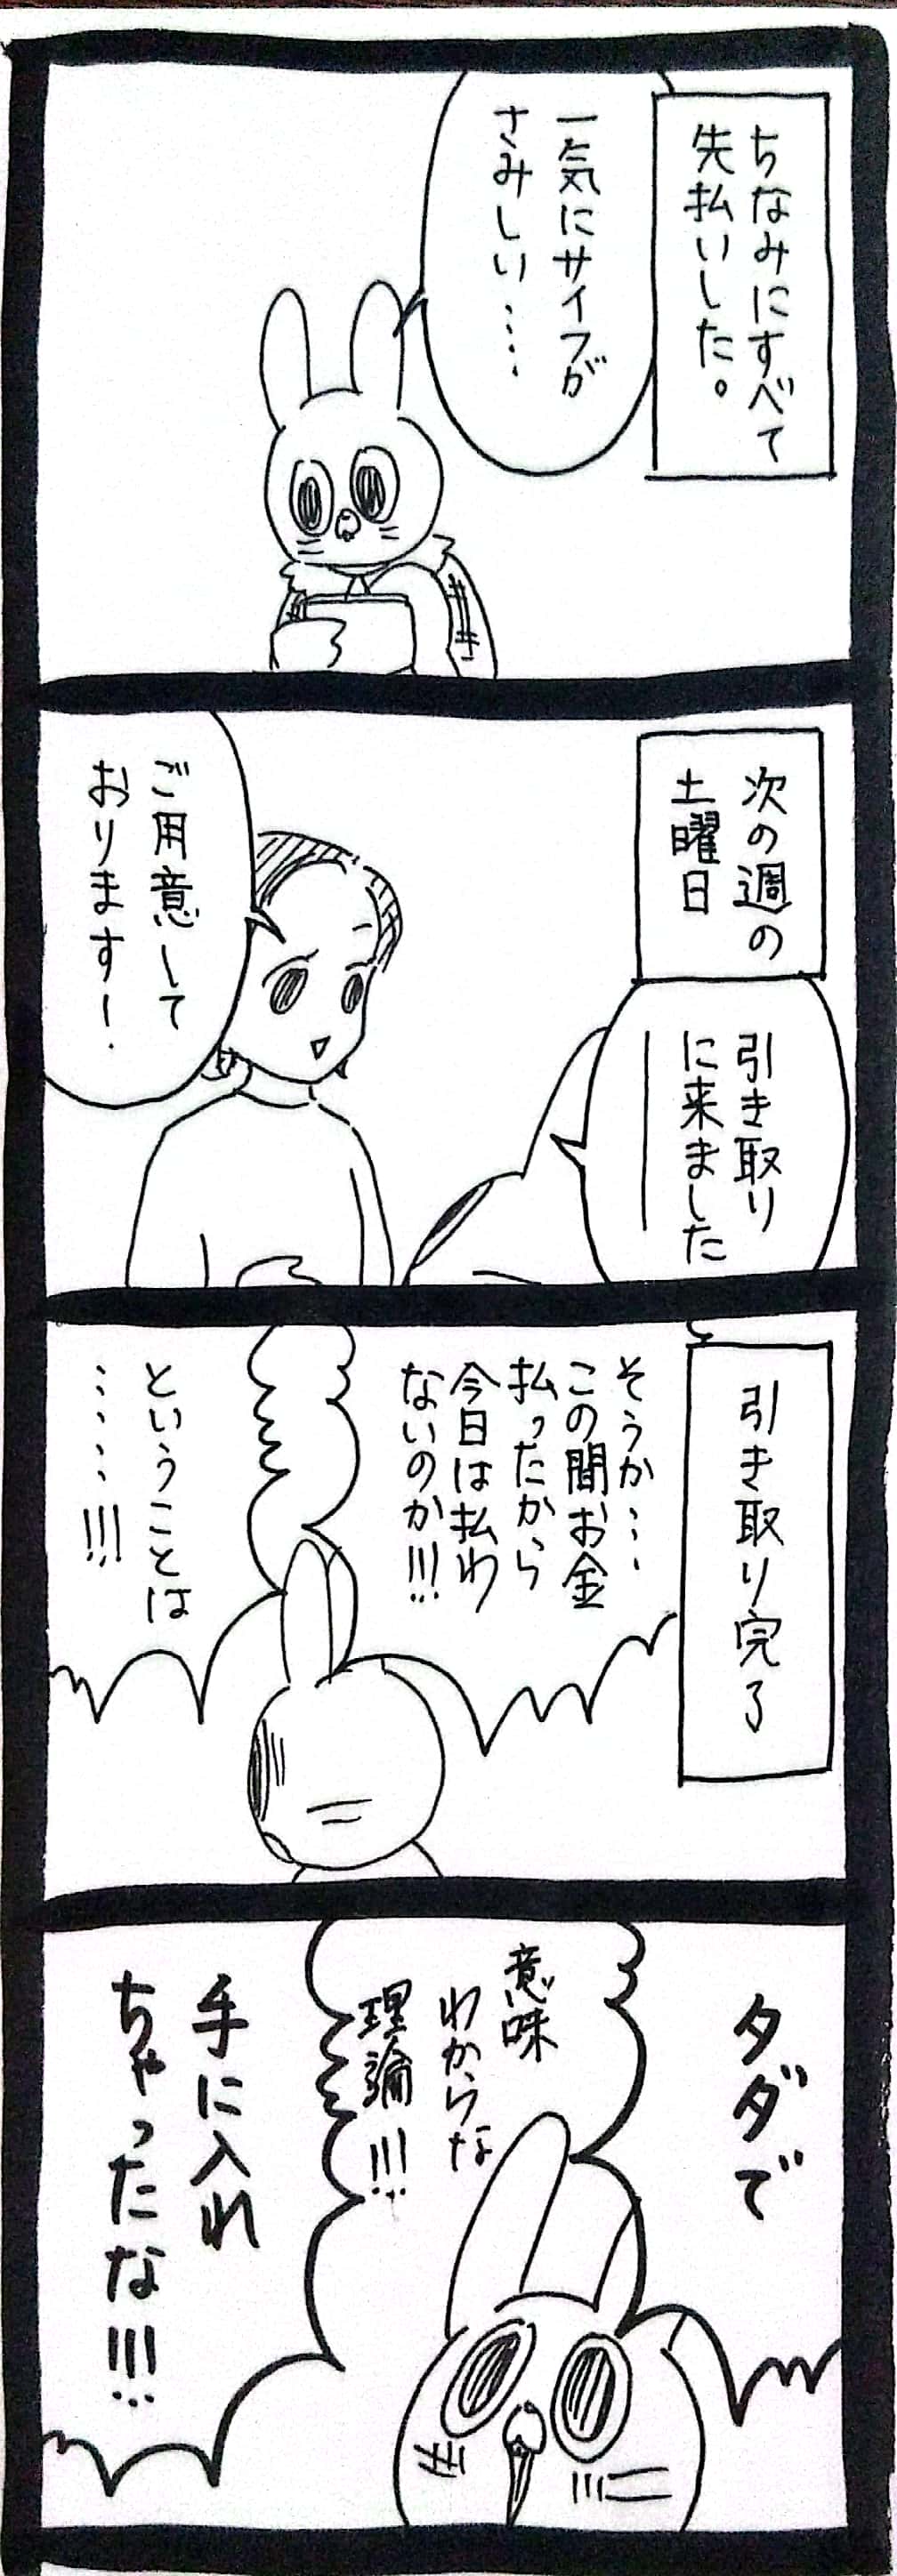 ちなみにすべて
先払いした。
一気にサイフが
さみしい……
次の週の
土曜日
引き取り
に来ました
ー
ご用意して
おります！
引き取り完了
そうか……
この間お金
払ったから
今日は払わ
ないのか!!!
ということは
………!!!
タダで
意味
わからな
理論!!!
手に入れ
ちゃったな!!!